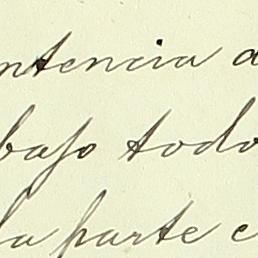 ntencia a
bajo todo
la parte e